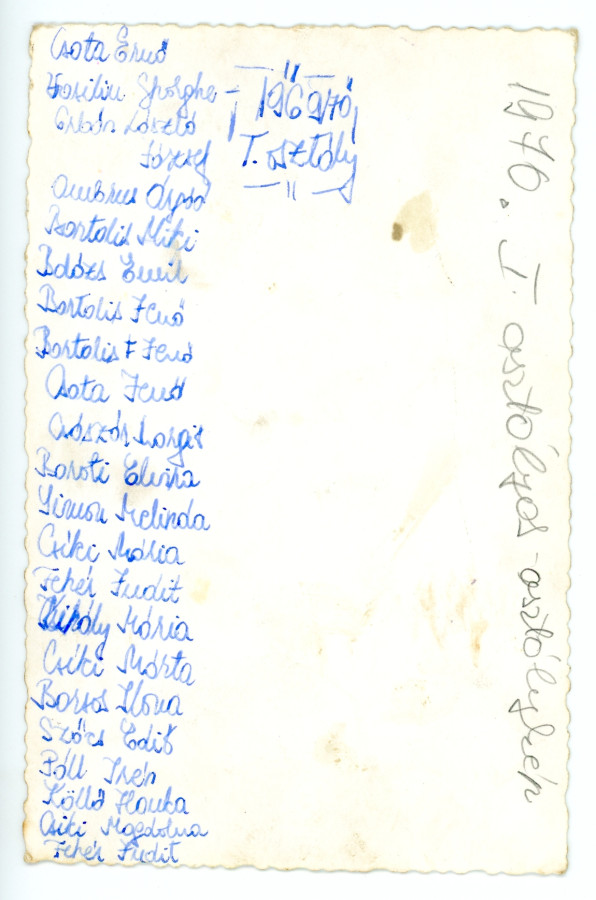 Csata Ernő
Vasiliu Ghorghe
Orbán László
József
Ambrus Árpád
Bartalis Miki
Balázs Emil
Bartalis Jenő
Bartalis F Jenő
Csata Jenő
Császár Margit
Baróti Elvira
Simon Melinda
Csiki Mária
Fehér Judit
Király Mária
Csiki Márta
Barsos Ilona
Szőcs Edit
Páll Irén
Köllő Ilonka
Csiki Magdolna
Fehér Judit
1969/70
I. osztály
1970. I. osztályos osztálykép